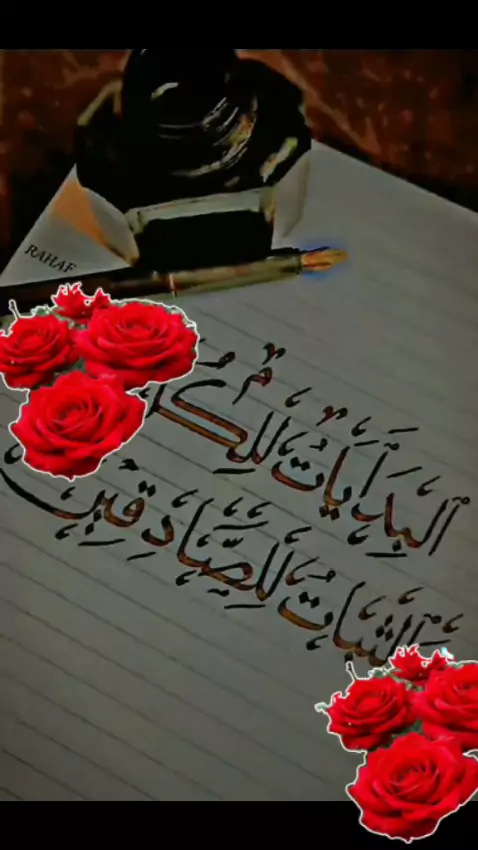 RAHAF
اَلْبِدَايَاتُ لِلْكُلِّ
وَالثَّبَاتُ لِلصَّادِقِينَ